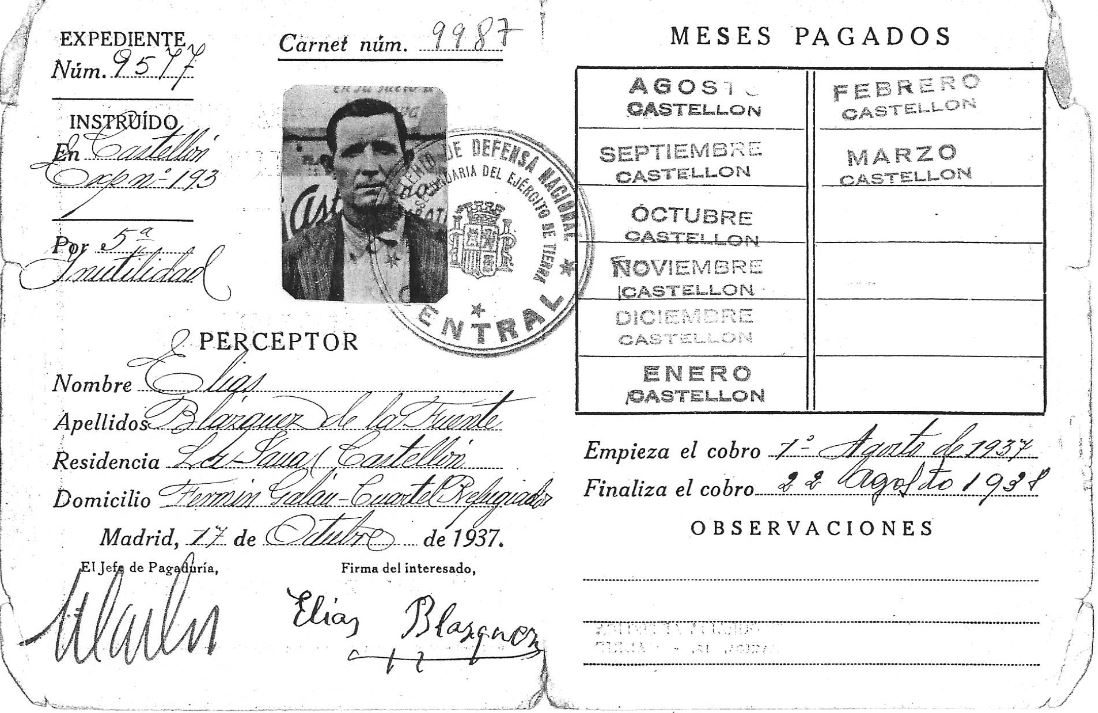 EXPEDIENTE
Núm. 9577
INSTRUÍDO
En Castellón
Exp nº 193
Por 5ª
Inutilidad
Carnet núm. 9987
DE DEFENSA NACIONAL
DEL EJÉRCITO DE TIERRA
CENTRAL
PERCEPTOR
Nombre Elias
Apellidos Blázquez de la Fuente
Residencia Castellón
Domicilio Fermin Galán-Cuartel Refugiados
Madrid, 17 de Octubre de 1937.
El Jefe de Pagaduría,
Firma del interesado,
Elias Blazquez
MESES PAGADOS
AGOSTO
CASTELLON
SEPTIEMBRE
CASTELLON
OCTUBRE
CASTELLON
NOVIEMBRE
CASTELLON
DICIEMBRE
CASTELLON
ENERO
CASTELLON
FEBRERO
CASTELLON
MARZO
CASTELLON
Empieza el cobro 1º Agosto de 1937
Finaliza el cobro 22 Agosto 1938
OBSERVACIONES